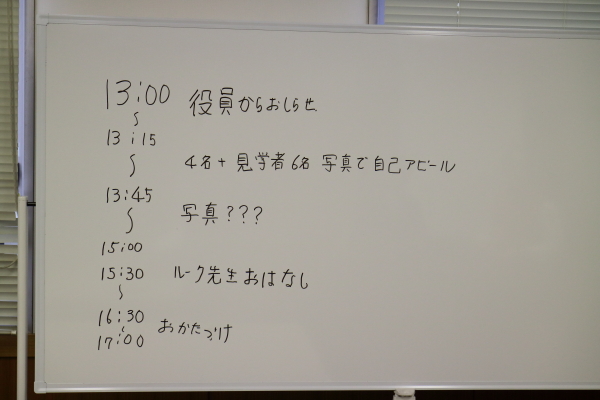 13:00 役員からおしらせ
〜
13:15
〜 4名+見学者6名 写真で自己アピール
13:45
〜 写真???
15:00
15:30 ルーク先生おはなし
〜
16:30
〜 おかたづけ
17:00